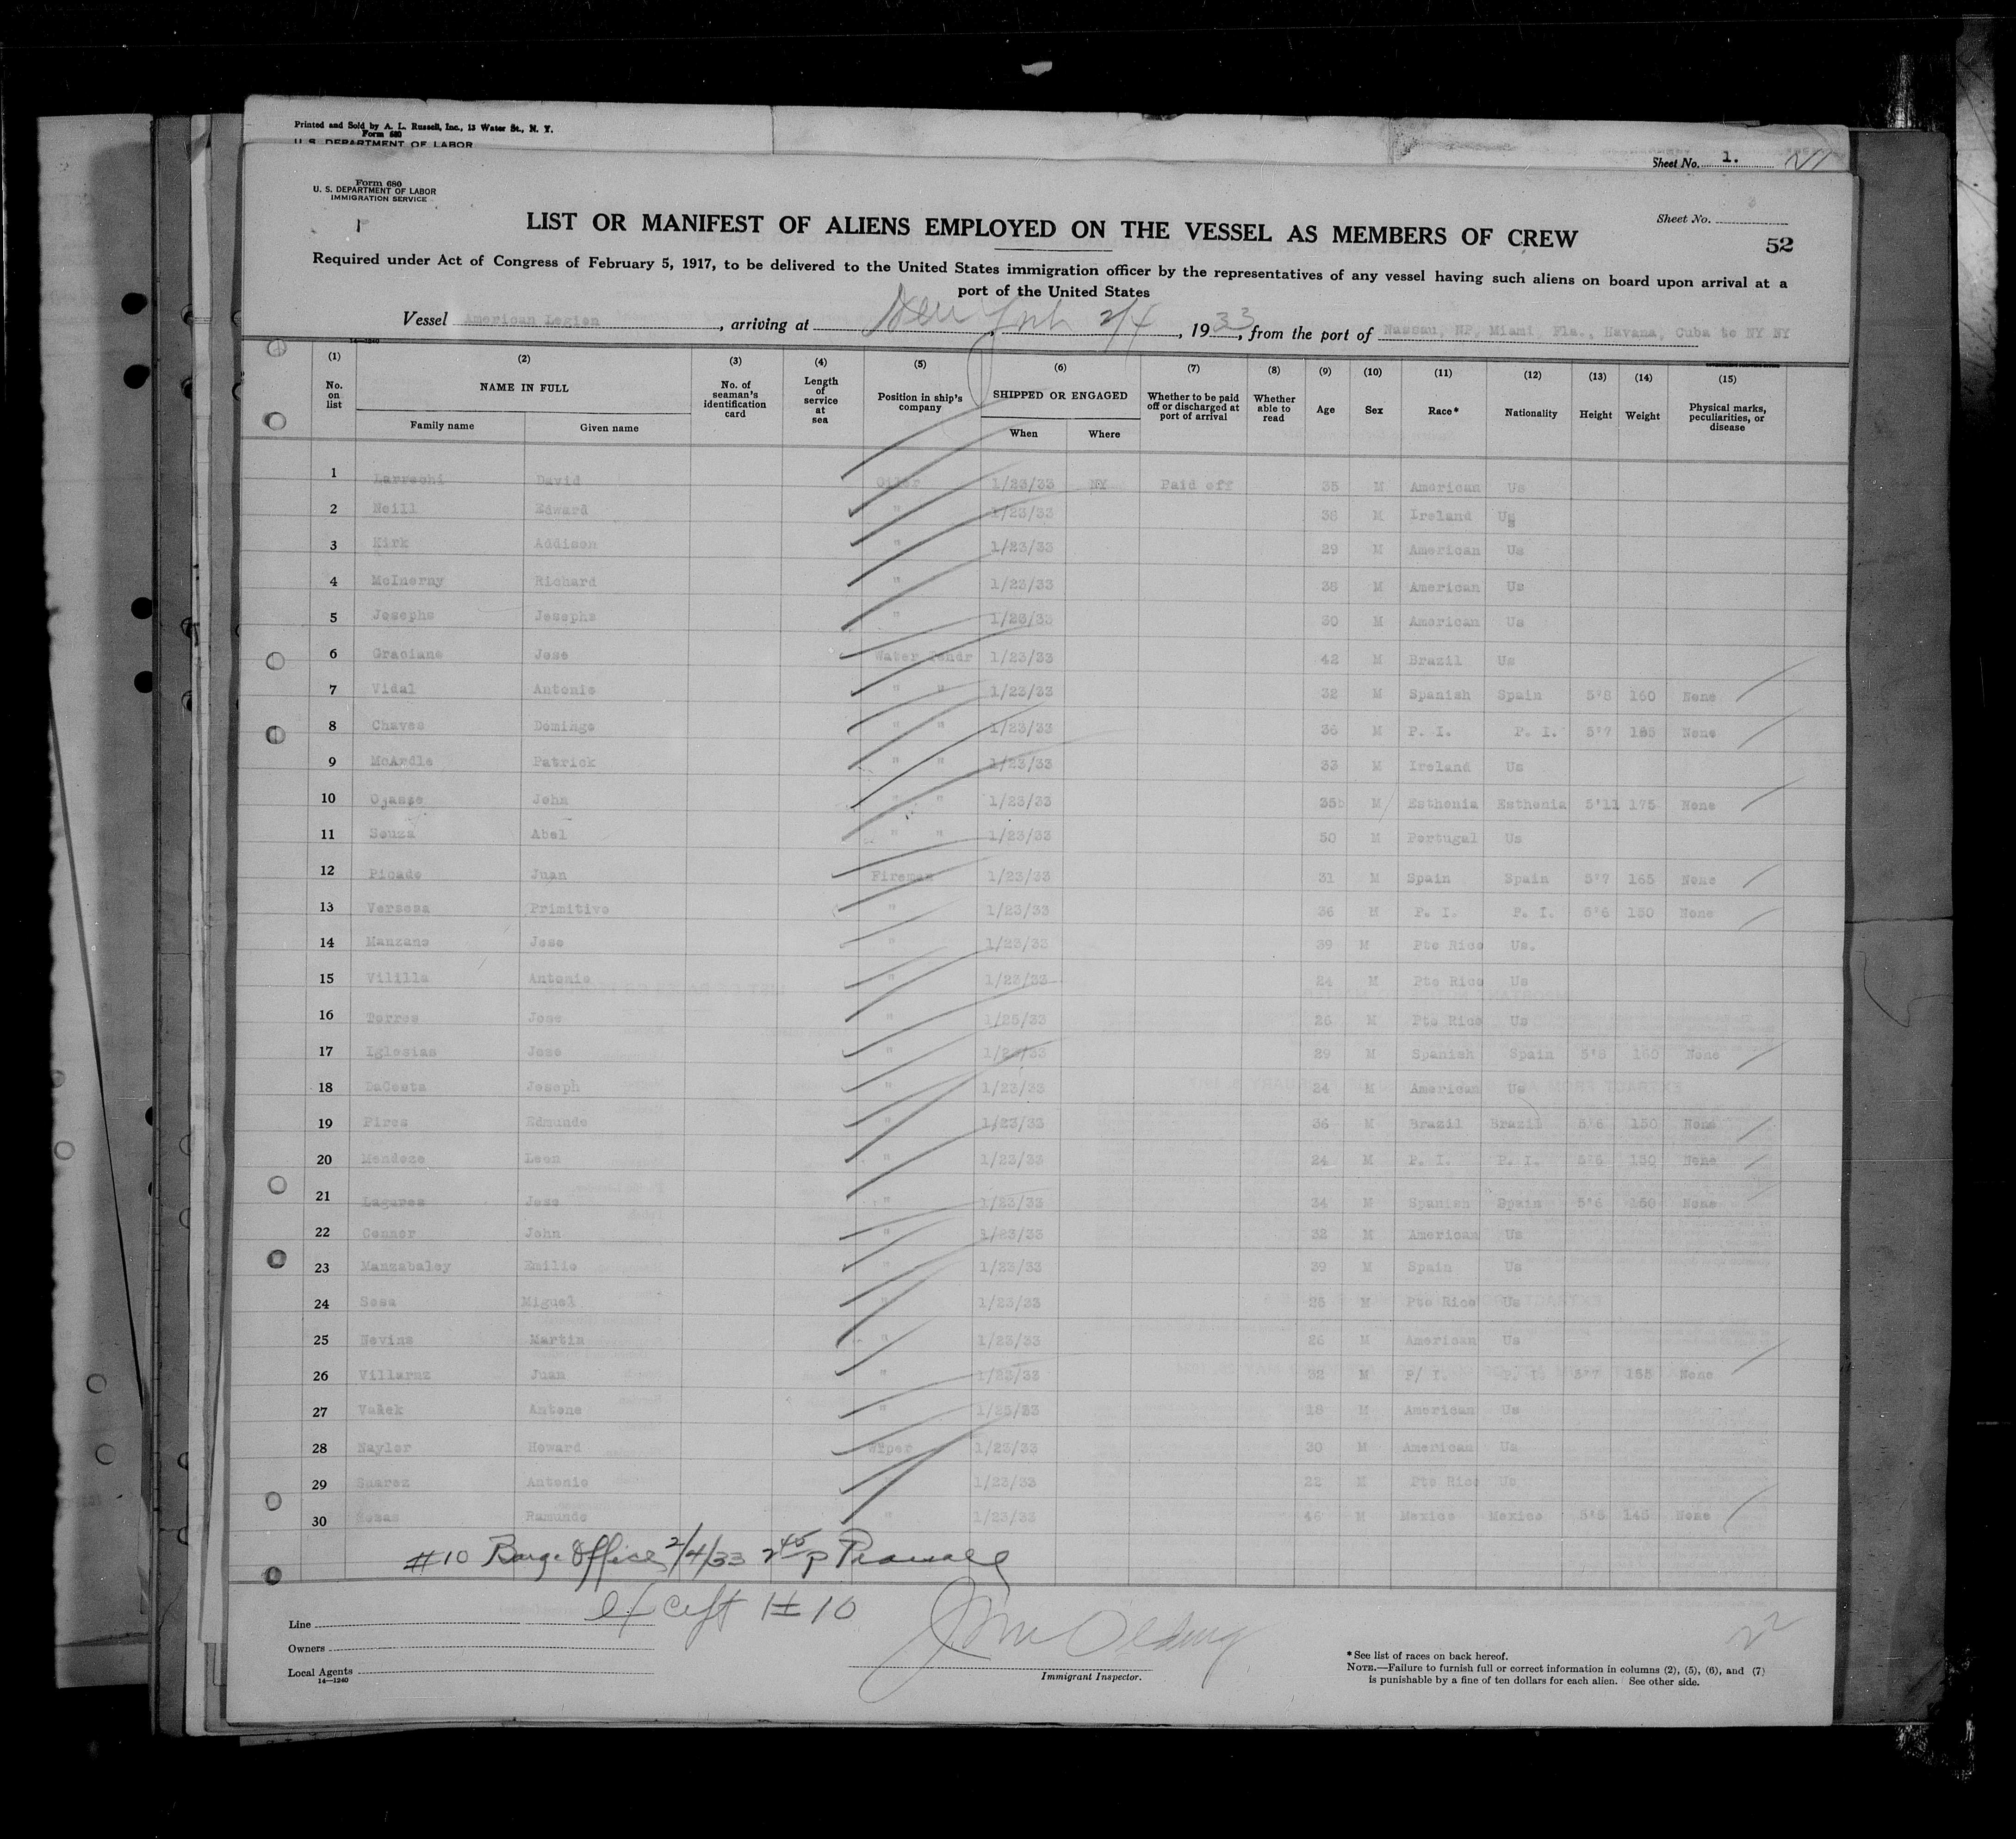 Printed and Sold by A. L. Russell, Inc., 13 Water St., N. Y.
Form 680
U. S. DEPARTMENT OF LABOR
Sheet No. 1.
Form 680
U. S. DEPARTMENT OF LABOR
IMMIGRATION SERVICE
Sheet No. 3
LIST OR MANIFEST OF ALIENS EMPLOYED ON THE VESSEL AS MEMBERS OF CREW
52
Required under Act of Congress of February 5, 1917, to be delivered to the United States immigration officer by the representatives of any vessel having such aliens on board upon arrival at a
port of the United States
Vessel American Legion, arriving at New York 2/4, 1933, from the port of Nassau, NP, Miami, Fla., Havana, Cuba to NY NY
14—1240
(1) (2) (3) (4) (5) (6) (7) (8) (9) (10) (11) (12) (13) (14) (15)
No. on list NAME IN FULL No. of seaman's identification card Length of service at sea Position in ship's company SHIPPED OR ENGAGED Whether to be paid off or discharged at port of arrival Whether able to read Age Sex Race* Nationality Height Weight Physical marks, peculiarities, or disease
Family name Given name When Where
1 Larrechi David Oiler 1/23/33 NY Paid off 35 M American Us
2 Neill Edward " 1/23/33 38 M Ireland Us
3 Kirk Addison " 1/23/33 29 M American Us
4 McInerny Richard " 1/23/33 38 M American Us
5 Josephs Josephs " 1/23/33 30 M American Us
6 Graciano Jose Water Tendr 1/23/33 42 M Brazil Us
7 Vidal Antonio " " 1/23/33 32 M Spanish Spain 5'8 160 None
8 Chaves Domingo " " 1/23/33 36 M P. I. P. I. 5'7 165 None
9 McArdle Patrick " " 1/23/33 33 M Ireland Us
10 Ojasse John " " 1/23/33 35b M Esthonia Esthonia 5'11 175 None
11 Souza Abel " " 1/23/33 50 M Portugal Us
12 Picado Juan Fireman 1/23/33 31 M Spain Spain 5'7 165 None
13 Versosa Primitivo " 1/23/33 36 M P. I. P. I. 5'6 150 None
14 Manzano Jose " 1/23/33 39 M Pto Rico Us.
15 Vililla Antonio " 1/23/33 24 M Pto Rico Us
16 Torres Jose " 1/25/33 26 M Pto Rico Us
17 Iglesias Jose " 1/23/33 29 M Spanish Spain 5'8 160 None
18 DaCosta Joseph " 1/23/33 24 M American Us
19 Pires Edmundo " 1/23/33 36 M Brazil Brazil 5'6 150 None
20 Mendoze Leon " 1/23/33 24 M P. I. P. I. 5'6 150 None
21 Lagares Jose " 1/23/33 34 M Spanish Spain 5'6 150 None
22 Connor John " 1/23/33 32 M American Us
23 Manzabaley Emilio " 1/23/33 39 M Spain Us
24 Sosa Miguel " 1/23/33 25 M Pto Rico Us
25 Nevins Martin " 1/23/33 26 M American Us
26 Villaruz Juan " 1/23/33 32 M P/ I. P. I. 5'7 165 None
27 Vałek Antone " 1/25/33 18 M American Us
28 Naylor Howard Wiper 1/23/33 30 M American Us
29 Suarez Antonio 1/23/33 22 M Pto Rico Us
30 Ramundo " 1/23/33 46 M Mexico Mexico 5'5 145 None
#10 Barge Office 2/4/33 2 45 P
except # 10
Line
Owners
Local Agents
14—1240
Immigrant Inspector.
*See list of races on back hereof.
NOTE.—Failure to furnish full or correct information in columns (2), (5), (6), and (7)
is punishable by a fine of ten dollars for each alien. See other side.